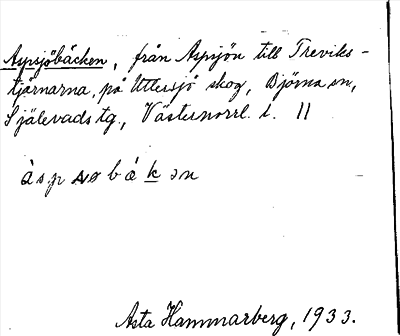 Aspsjöbäcken, från Aspsjön till Treviks-
tjärnarna, på Uttersjö skog, Björna sn,
Själevads tg., Västernorrl. l. 11
Asta Hammarberg, 1933.